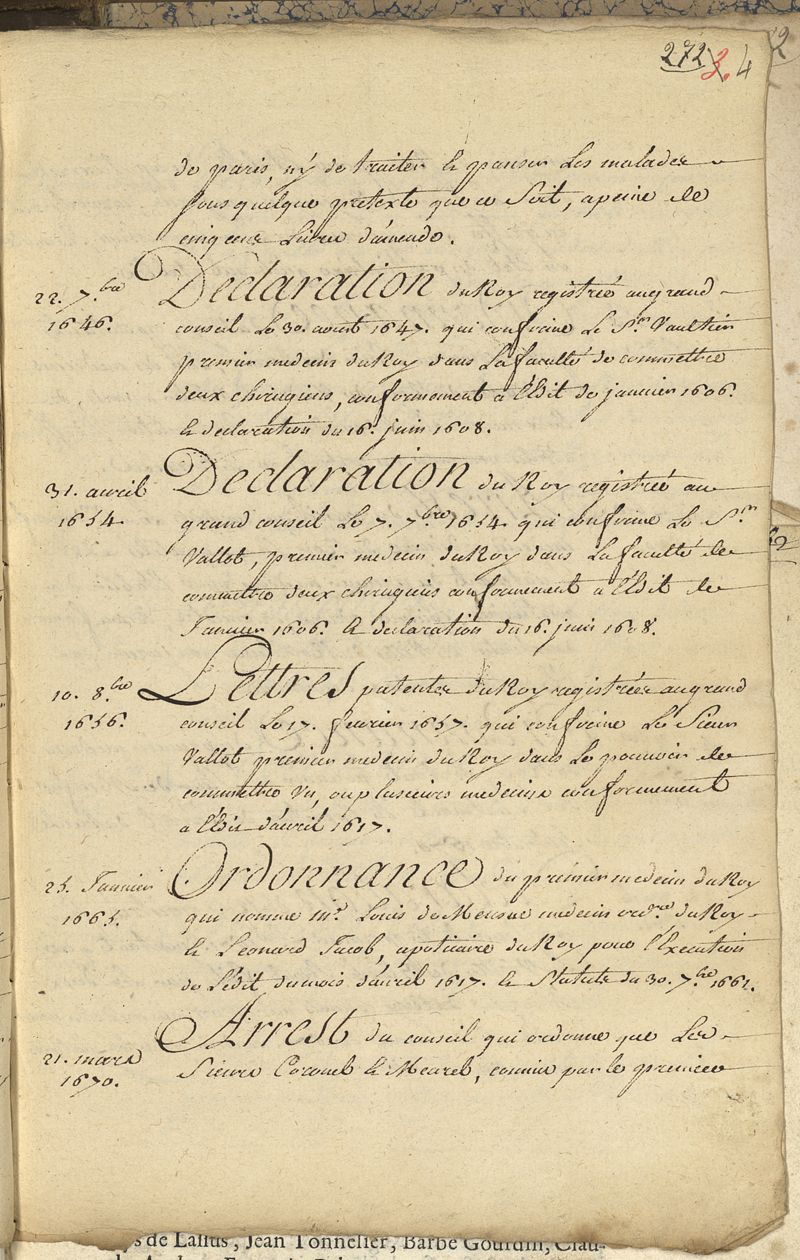 272 3. 4
2
de paris, ny de traiter & panser les malades
sous quelque pretexte que ce soit, a peine de
cinq cens Livres d'amende.
22. 7.bre
1646.
Declaration du Roy registrée au grand
conseil Le 30. aoust 1647. qui confirme Le Sr. Vaultier
premier medecin du Roy dans La faculté de commettre
deux chirugiens, conformement a l'Edit de janvier 1606.
& declaration du 16. juin 1608.
31. avril
1654
Declaration du Roy registrée au
grand conseil Le 7. 7.bre 1654 qui confirme Le Sr.
Vallot, premier medecin du Roy dans La faculté de
commettre deux chirugiens conformement a l'Edit de
Janvier 1606. & declaration du 16. juin 1608.
10. 8.bre
1656.
Lettres patentes du Roy registrées au grand
conseil Le 17. fevrier 1657. qui confirme Le Sieur
Vallot premier medecin du Roy dans Le pouvoir de
commettre un, ou plusieurs medecins conformement
a l'Edit d'avril 1617.
25. Janvier
1665.
Ordonnance du premier medecin du Roy
qui nomme Mr. Louis de Mensue medecin ord.re du Roy
& Leonard Jacob, apoticaire du Roy pour l'Execution
de L'édit du mois d'avril 1617. & Statuts du 30. 7.bre 1661.
21. mars
1670.
Arrest du conseil qui ordonne que Les
Sieurs Coronel & Meurel, commis par le premier
s de Lallus, Jean Tonnelier, Barbe Gourdin, Clau-